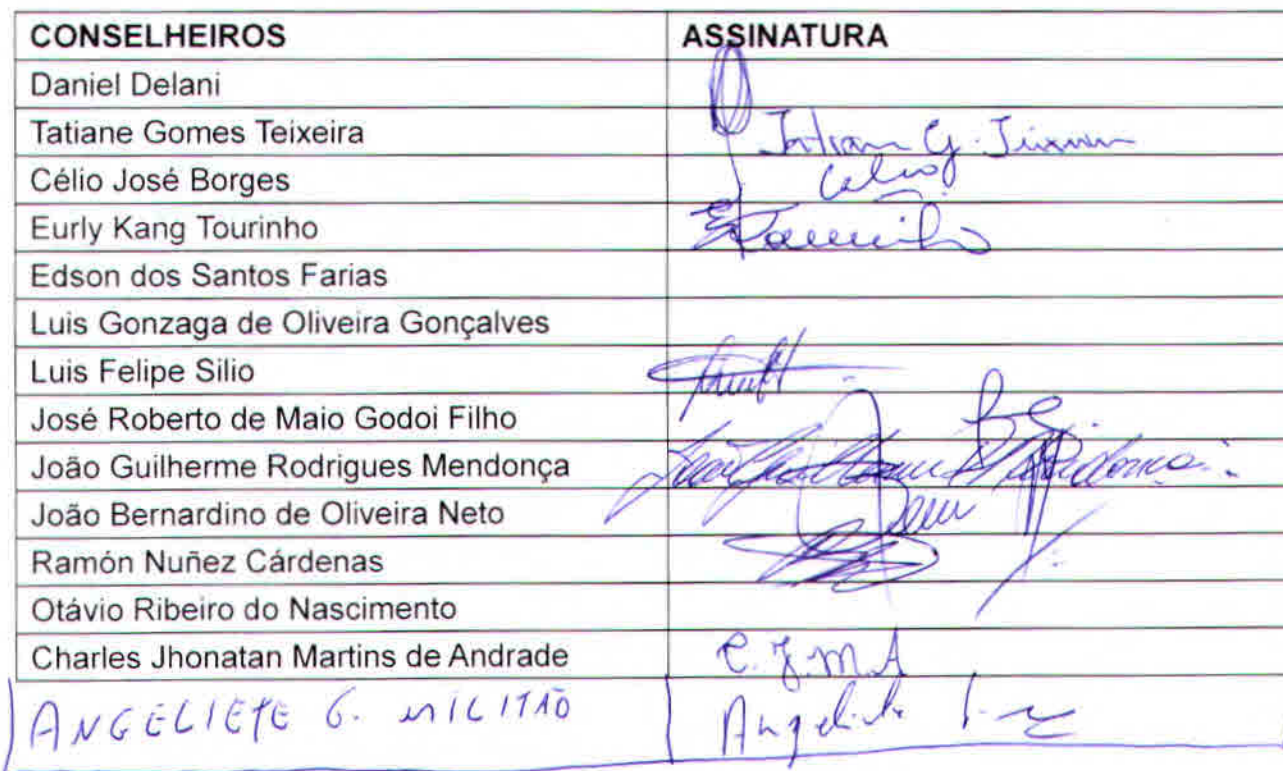 CONSELHEIROS ASSINATURA
Daniel Delani
Tatiane Gomes Teixeira
Célio José Borges
Eurly Kang Tourinho
Edson dos Santos Farias
Luis Gonzaga de Oliveira Gonçalves
Luis Felipe Silio
José Roberto de Maio Godoi Filho
João Guilherme Rodrigues Mendonça
João Bernardino de Oliveira Neto
Ramón Nuñez Cárdenas
Otávio Ribeiro do Nascimento
Charles Jhonatan Martins de Andrade C.J.M.A
ANGELIETE G. MILITÃO